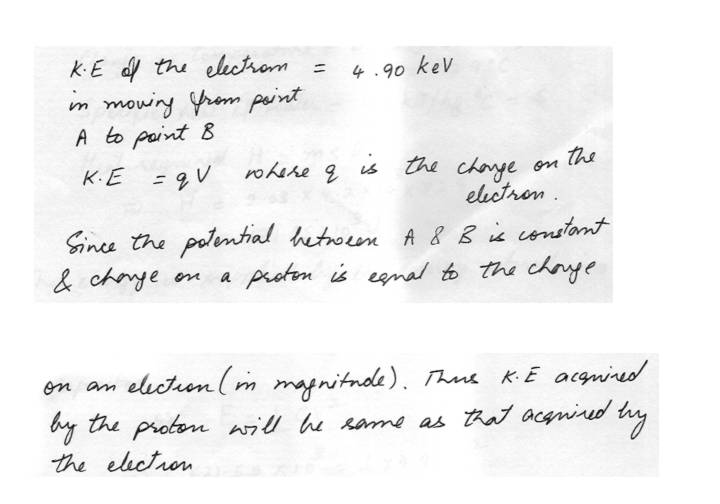 K.E of the electron = 4.90 keV
in moving from point
A to point B
K.E = qV where q is the charge on the
electron.
Since the potential between A & B is constant
& charge on a proton is equal to the charge
on an electron (in magnitude). Thus K.E acquired
by the proton will be same as that acquired by
the electron